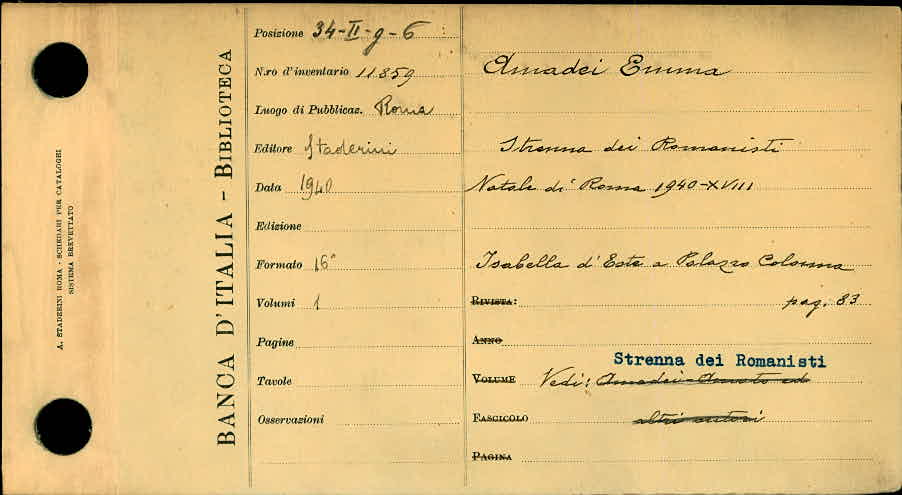 A. STADERINI ROMA - SCHEDARI PER CATALOGHI
SISTEMA BREVETTATO
BANCA D'ITALIA - BIBLIOTECA
Posizione 34-II-g-6
N.ro d'inventario 11859
Luogo di Pubblicaz. Roma
Editore Staderini
Data 1940
Edizione
Formato 16°
Volumi 1
Pagine
Tavole
Osservazioni
Amadei Emma
Strenna dei Romanisti
Natale di Roma 1940-XVIII
Isabella d'Este a Palazzo Colonna
RIVISTA: pag. 83
ANNO
Strenna dei Romanisti
VOLUME Vedi: Amadei-Amato ed
FASCICOLO altri autori
PAGINA